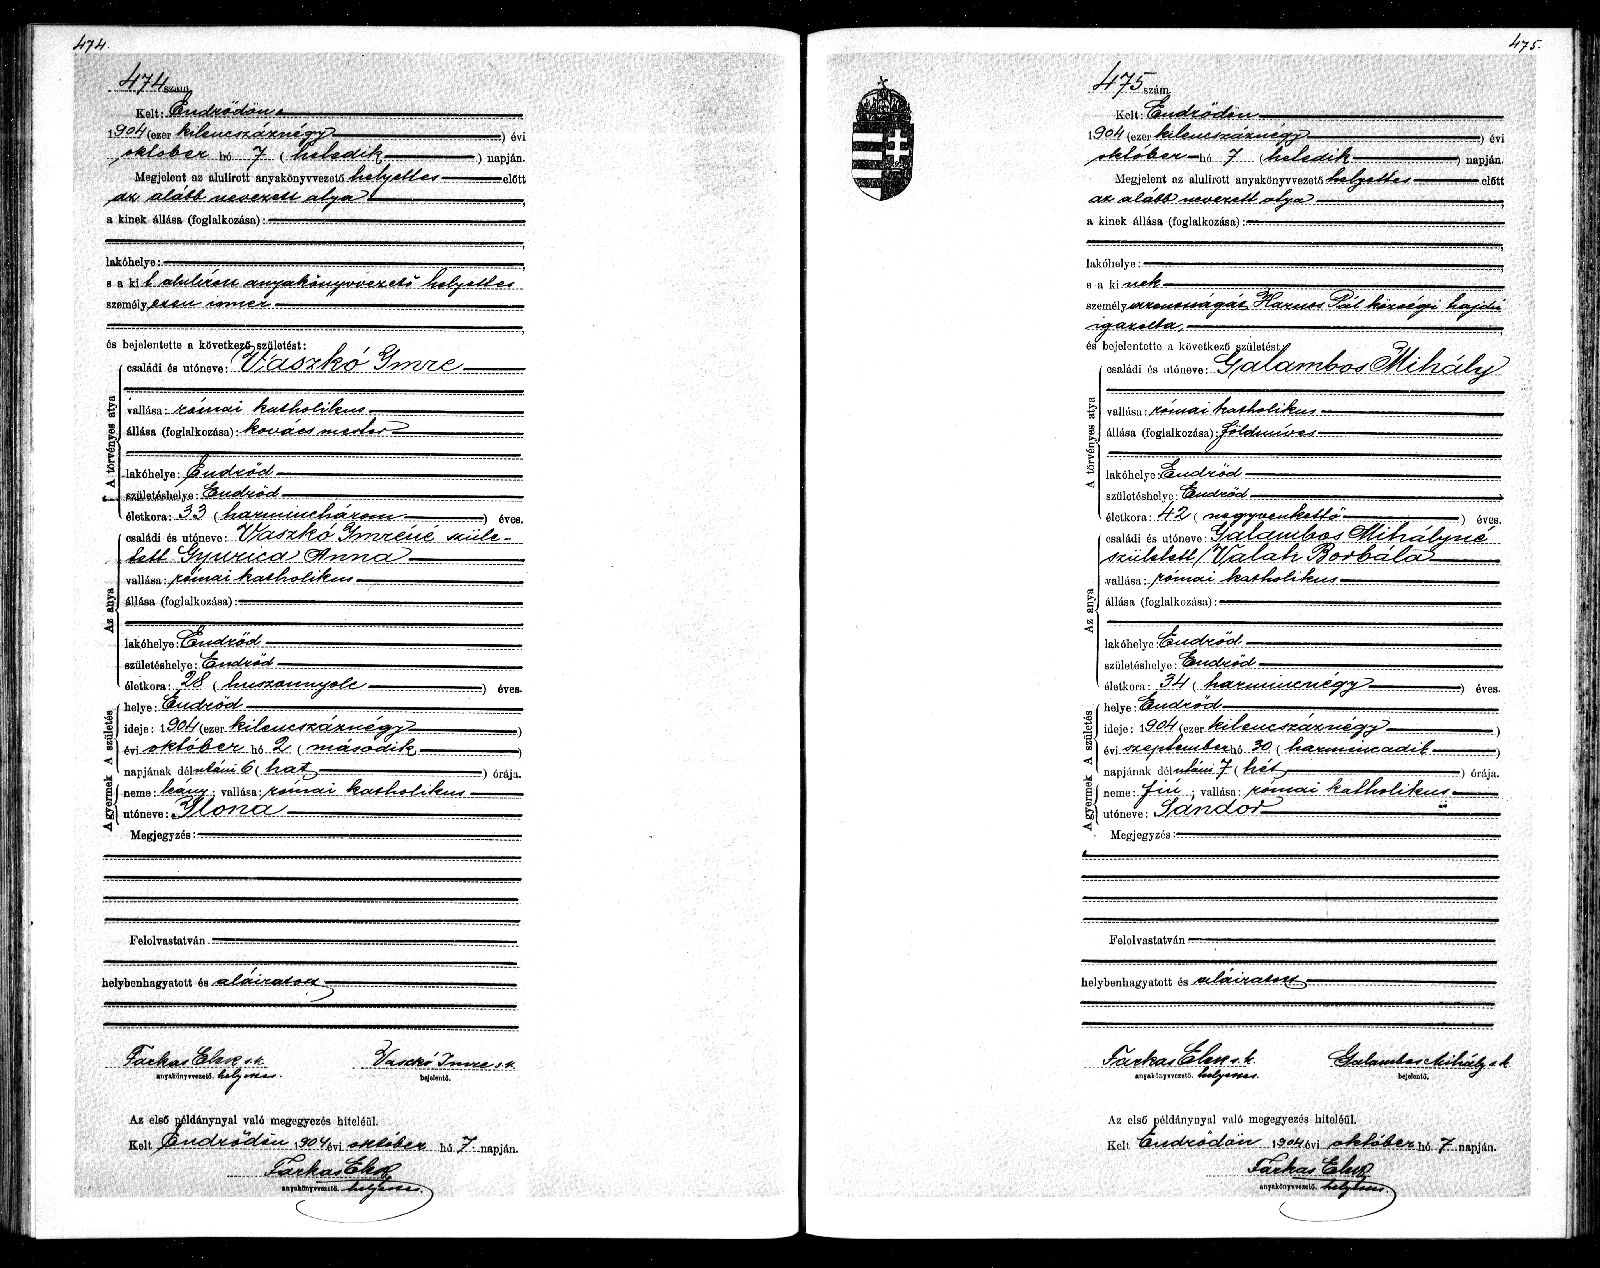 474.
474 szám.
Kelt: Endrődön
1904 (ezer kilencszáznégy ) évi
október hó 7 ( hetedik ) napján.
Megjelent az alulirott anyakönyvvezető helyettes előtt
az alább nevezett atya ,
a kinek állása (foglalkozása):
lakóhelye:
s a ki t alulírott anyakönyvvezető helyettes
személyesen ismer
és bejelentette a következő születést:
A törvényes atya
családi és utóneve: Vaszkó Imre
vallása: római katholikus
állása (foglalkozása): kovácsmester
lakóhelye: Endrőd
születéshelye: Endrőd
életkora: 33 ( harminchárom ) éves.
Az anya
családi és utóneve: Vaszkó Imréné szüle-
tett Gyurica Anna
vallása: római katholikus
állása (foglalkozása):
lakóhelye: Endrőd
születéshelye: Endrőd
életkora: 28 ( huszonnyolc ) éves.
A születés
helye: Endrőd
ideje: 1904 (ezer kilencszáznégy )
évi október hó 2 ( második )
napjának délutáni 6 ( hat ) órája.
A gyermek
neme: leány ; vallása: római katholikus
utóneve: Ilona
Megjegyzés:
Felolvastatván
helybenhagyatott és aláiratott
Farkas s. k. Vaszkó Imre s. k.
anyakönyvvezető. helyettes. bejelentő.
Az első példánynyal való megegyezés hiteléül.
Kelt Endrődön 1904 évi október hó 7 napján.
Farkas
anyakönyvvezető. helyettes.
475.
475 szám.
Kelt: Endrődön
1904 (ezer kilencszáznégy ) évi
október hó 7 ( hetedik ) napján.
Megjelent az alulirott anyakönyvvezető helyettes előtt
az alább nevezett atya ,
a kinek állása (foglalkozása):
lakóhelye:
s a ki nek
személyazonosságát Harnos Pál községi hajdú
igazolta,
és bejelentette a következő születést:
A törvényes atya
családi és utóneve: Galambos Mihály
vallása: római katholikus
állása (foglalkozása): földmíves
lakóhelye: Endrőd
születéshelye: Endrőd
életkora: 42 ( negyvenkettő ) éves.
Az anya
családi és utóneve: Galambos Mihályné
született Valah Borbála
vallása: római katholikus
állása (foglalkozása):
lakóhelye: Endrőd
születéshelye: Endrőd
életkora: 34 ( harmincnégy ) éves.
A születés
helye: Endrőd
ideje: 1904 (ezer kilencszáznégy )
évi szeptember hó 30 ( harmincadik )
napjának délutáni 7 ( hét ) órája.
A gyermek
neme: fiú ; vallása: római katholikus
utóneve: Sándor
Megjegyzés:
Felolvastatván
helybenhagyatott és aláiratott
Farkas s. k. Galambos Mihály s. k.
anyakönyvvezető. helyettes. bejelentő.
Az első példánynyal való megegyezés hiteléül.
Kelt Endrődön 1904 évi október hó 7 napján.
Farkas
anyakönyvvezető. helyettes.